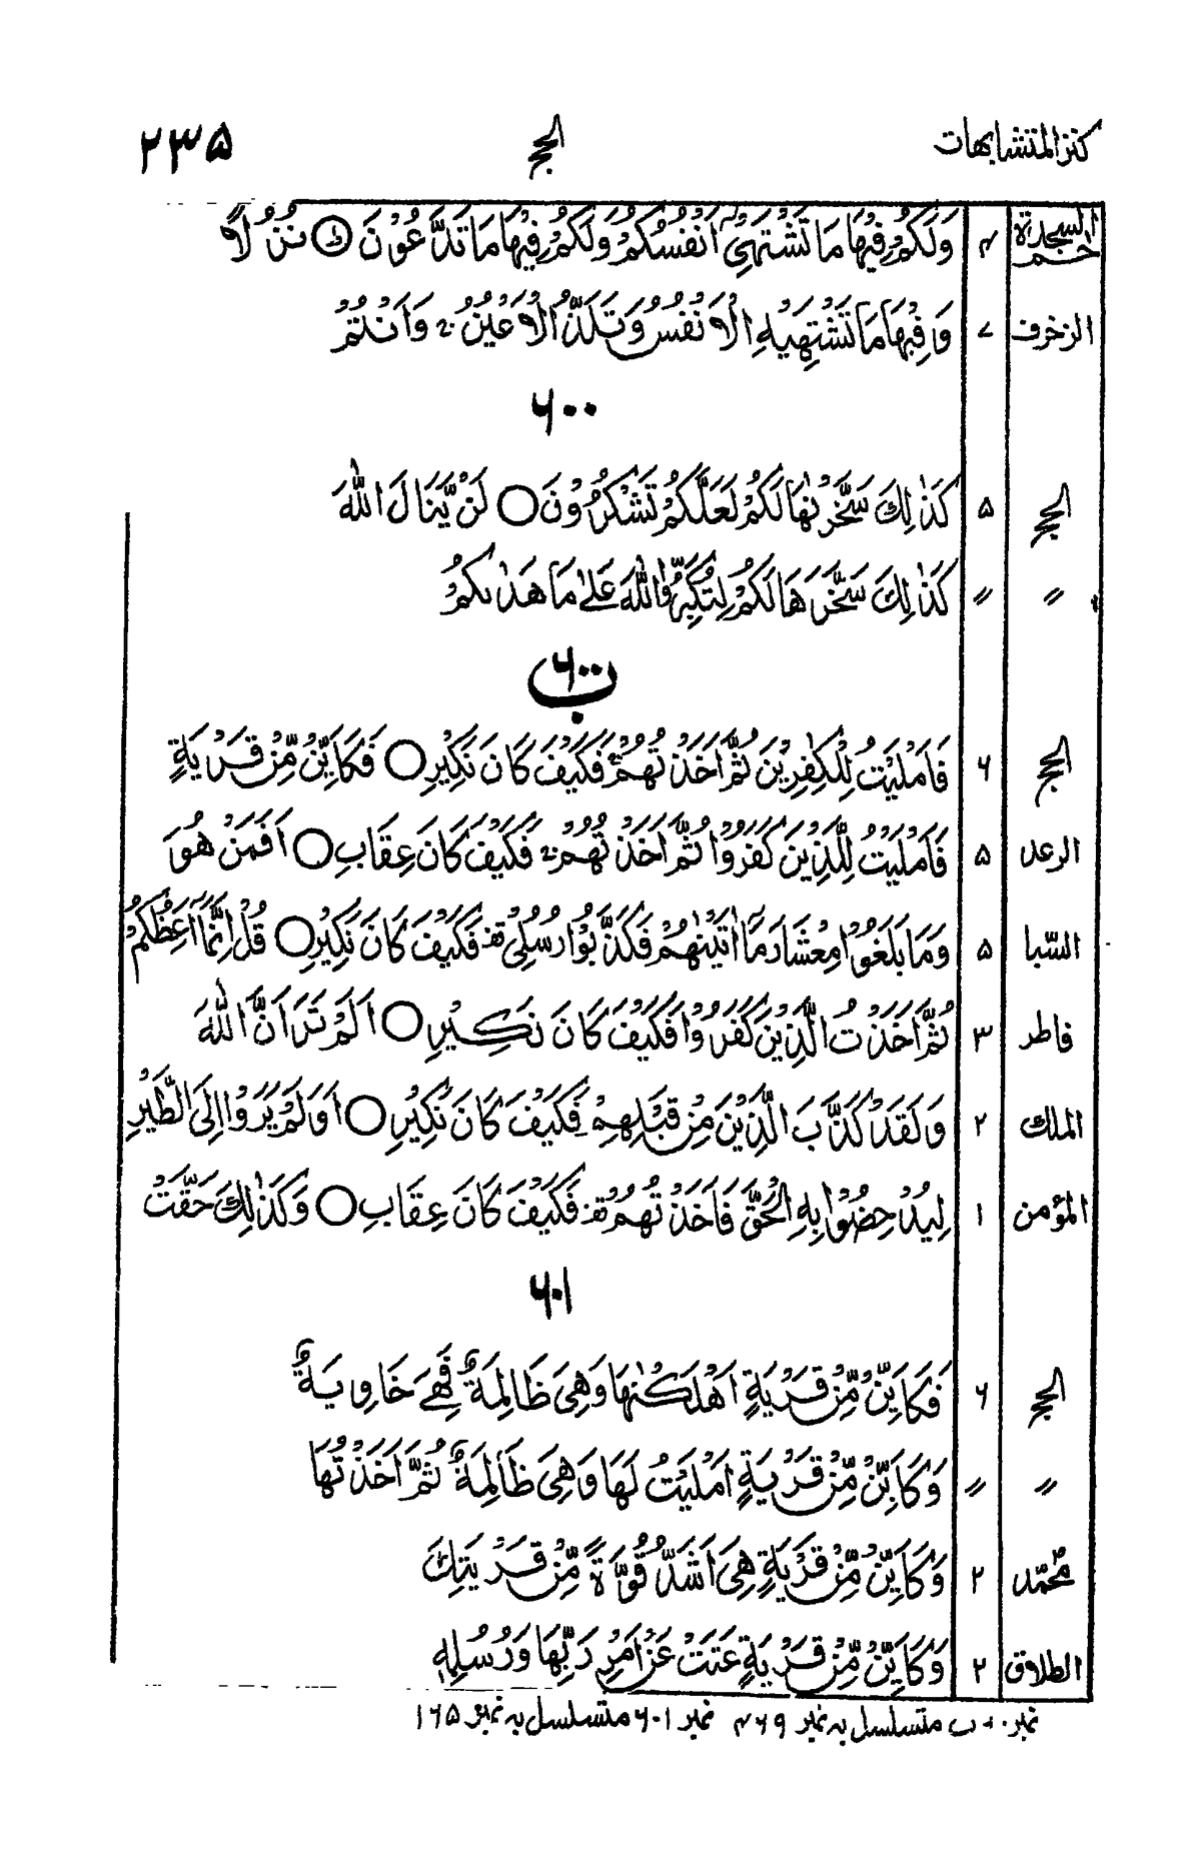 كنز المتشابهات الحج ۲۳۵
حم السجدة ۴ وَلَكُمْ فِيْهَا مَا تَشْتَهِيْٓ اَنْفُسُكُمْ وَلَكُمْ فِيْهَا مَا تَدَّعُوْنَ ○ نُزُلًا
الزخرف ۷ وَفِيْهَا مَا تَشْتَهِيْهِ الْاَنْفُسُ وَتَلَذُّ الْاَعْيُنُ ۚ وَاَنْتُمْ
۶۰۰
الحج ۵ كَذٰلِكَ سَخَّرْنٰهَا لَكُمْ لَعَلَّكُمْ تَشْكُرُوْنَ ○ لَنْ يَّنَالَ اللّٰهَ
〃 〃 كَذٰلِكَ سَخَّرَهَا لَكُمْ لِتُكَبِّرُوا اللّٰهَ عَلٰى مَا هَدٰىكُمْ
۶۰۰ ب
الحج ۶ فَاَمْلَيْتُ لِلْكٰفِرِيْنَ ثُمَّ اَخَذْتُهُمْ ۚ فَكَيْفَ كَانَ نَكِيْرِ ○ فَكَاَيِّنْ مِّنْ قَرْيَةٍ
الرعد ۵ فَاَمْلَيْتُ لِلَّذِيْنَ كَفَرُوْا ثُمَّ اَخَذْتُهُمْ ۚ فَكَيْفَ كَانَ عِقَابِ ○ اَفَمَنْ هُوَ
السّبا ۵ وَمَا بَلَغُوْا مِعْشَارَ مَآ اٰتَيْنٰهُمْ فَكَذَّبُوْا رُسُلِيْ ۚ فَكَيْفَ كَانَ نَكِيْرِ ○ قُلْ اِنَّمَآ اَعِظُكُمْ
فاطر ۳ ثُمَّ اَخَذْتُ الَّذِيْنَ كَفَرُوْا فَكَيْفَ كَانَ نَكِيْرِ ○ اَلَمْ تَرَ اَنَّ اللّٰهَ
الملك ۲ وَلَقَدْ كَذَّبَ الَّذِيْنَ مِنْ قَبْلِهِمْ فَكَيْفَ كَانَ نَكِيْرِ ○ اَوَلَمْ يَرَوْا اِلَى الطَّيْرِ
المؤمن ۱ لِيُدْحِضُوْا بِهِ الْحَقَّ فَاَخَذْتُهُمْ ۫ فَكَيْفَ كَانَ عِقَابِ ○ وَكَذٰلِكَ حَقَّتْ
۶۰۱
الحج ۶ فَكَاَيِّنْ مِّنْ قَرْيَةٍ اَهْلَكْنٰهَا وَهِيَ ظَالِمَةٌ فَهِيَ خَاوِيَةٌ
〃 〃 وَكَاَيِّنْ مِّنْ قَرْيَةٍ اَمْلَيْتُ لَهَا وَهِيَ ظَالِمَةٌ ثُمَّ اَخَذْتُهَا
محمّد ۲ وَكَاَيِّنْ مِّنْ قَرْيَةٍ هِيَ اَشَدُّ قُوَّةً مِّنْ قَرْيَتِكَ
الطلاق ۲ وَكَاَيِّنْ مِّنْ قَرْيَةٍ عَتَتْ عَنْ اَمْرِ رَبِّهَا وَرُسُلِهٖ
نمبر ب متسلسل به نمبر ۴۶۹ نمبر ۶۰۱ متسلسل به نمبر ۱۶۵